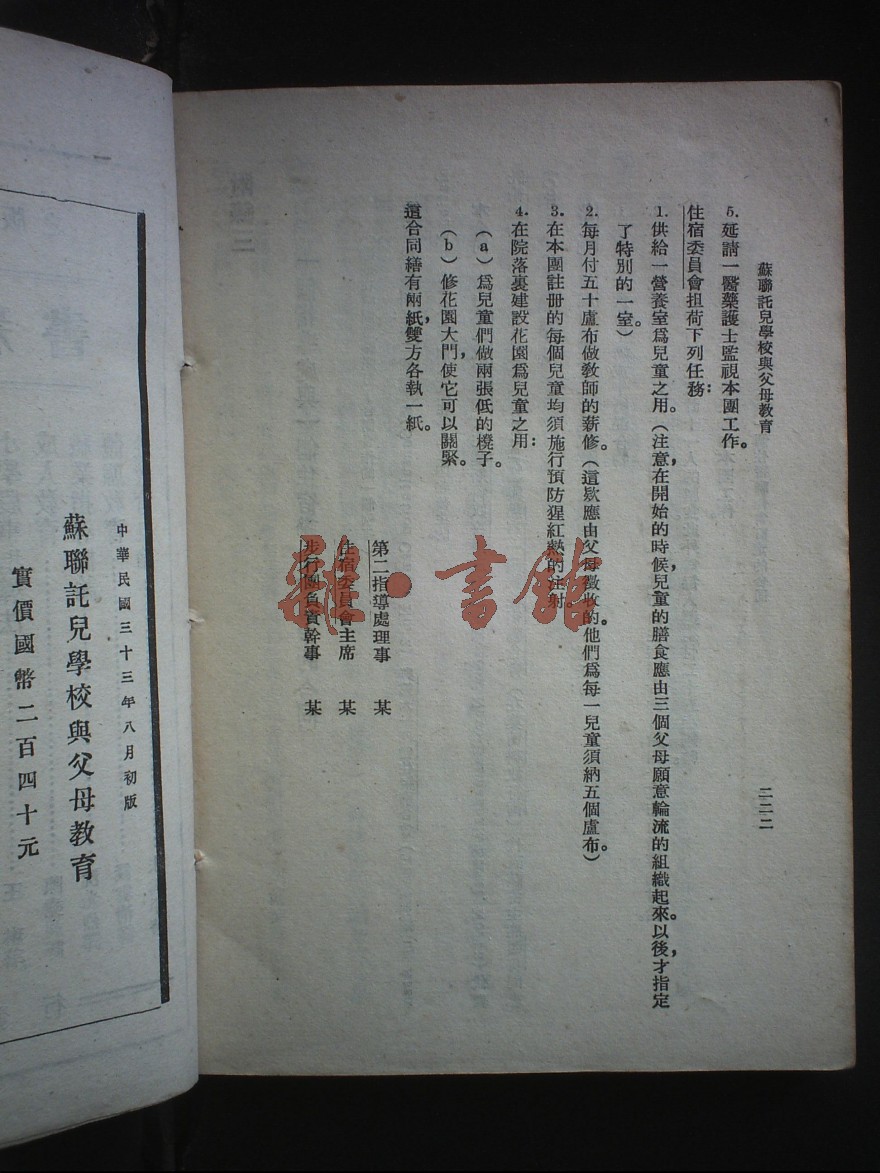 蘇聯託兒學校與父母教育
二二二
5.延請一醫藥護士監視本團工作。
住宿委員會担荷下列任務：
1.供給一營養室爲兒童之用。（注意在開始的時候，兒童的膳食應由三個父母願意輪流的組織起來。以後，才指定
了特別的一室。）
2.每月付五十盧布做教師的薪修。（這欵應由父母徵收的。他們爲每一兒童須納五個盧布。）
3.在本團註册的每個兒童均須施行預防猩紅熱的注射。
4.在院落裏建設花園爲兒童之用：
（a）爲兒童們做兩張低的櫈子。
（b）修花園大門，使它可以關緊。
這合同繕有兩紙，雙方各執一紙。
第二指導處理事　某
住宿委員會主席　某
步行團負責幹事　某
雜·書館
中華民國三十三年八月初版
蘇聯託兒學校與父母教育
實價國幣二百四十元